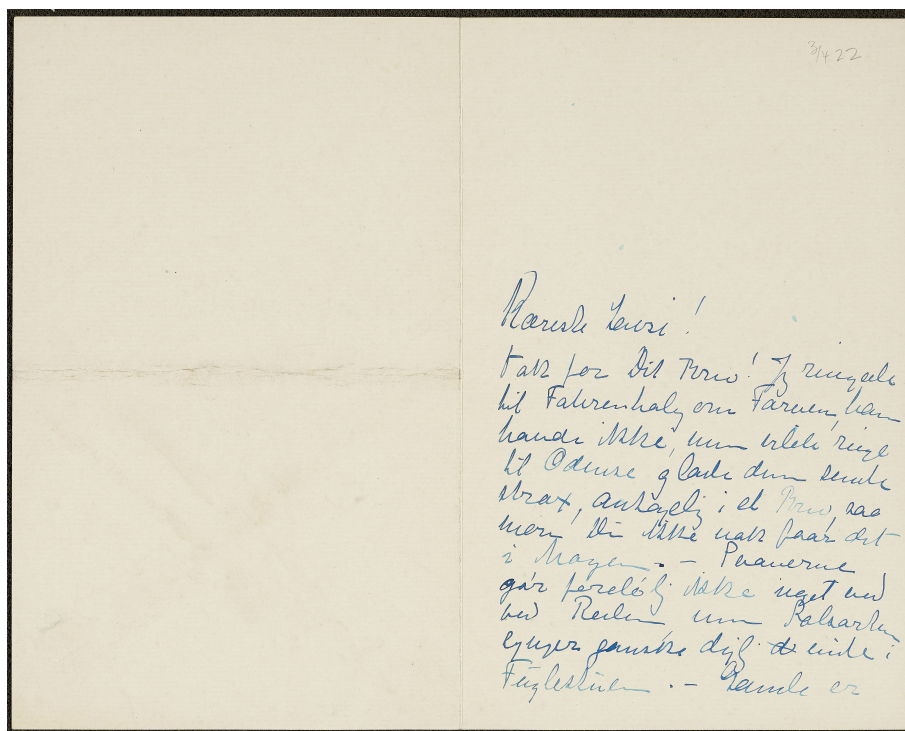 3/4 22
Kæreste Lausi!
Tak for Dit Brev! Jeg ringede
til Fahrenholz om Farven, han
havde ikke, men vilde ringe
til Odense og lade dem sende
strax, antagelig i et Brev, saa
mon Du ikke nok faar det
i Morgen. —
gør ikke noget
ved Reden men
synger ganske dejlig inde i
Fuglestuen. — Gamle er